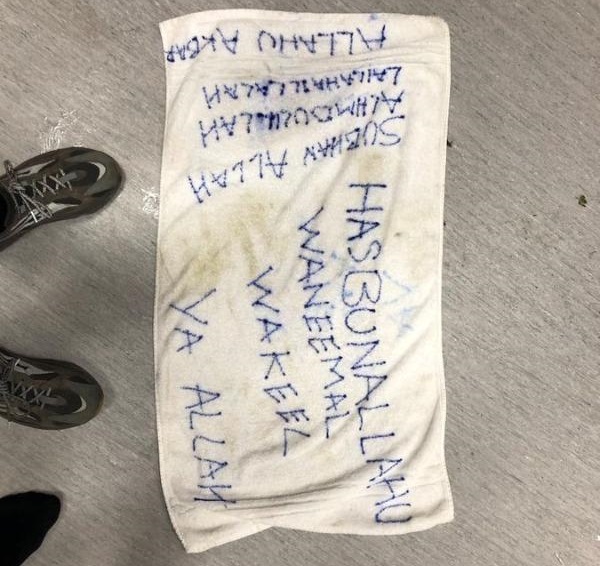 SUBHAN ALLAH
ALHMDULILLAH
LAILAHAILLALAH
ALLAHU AKBAR
HASBUNALLAHU
WANEEMAL
WAKEEL
YA ALLAH